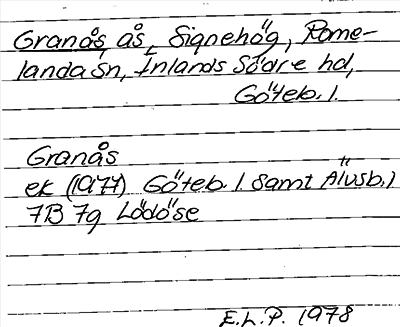 Granås, ås, Signehög, Rome-
landa sn, Inlands Södre hd,
Göteb. l.
Granås
ek (1977) Göteb. l. samt Älvsb. l
7B 7g Lödöse
E.L.P. 1978